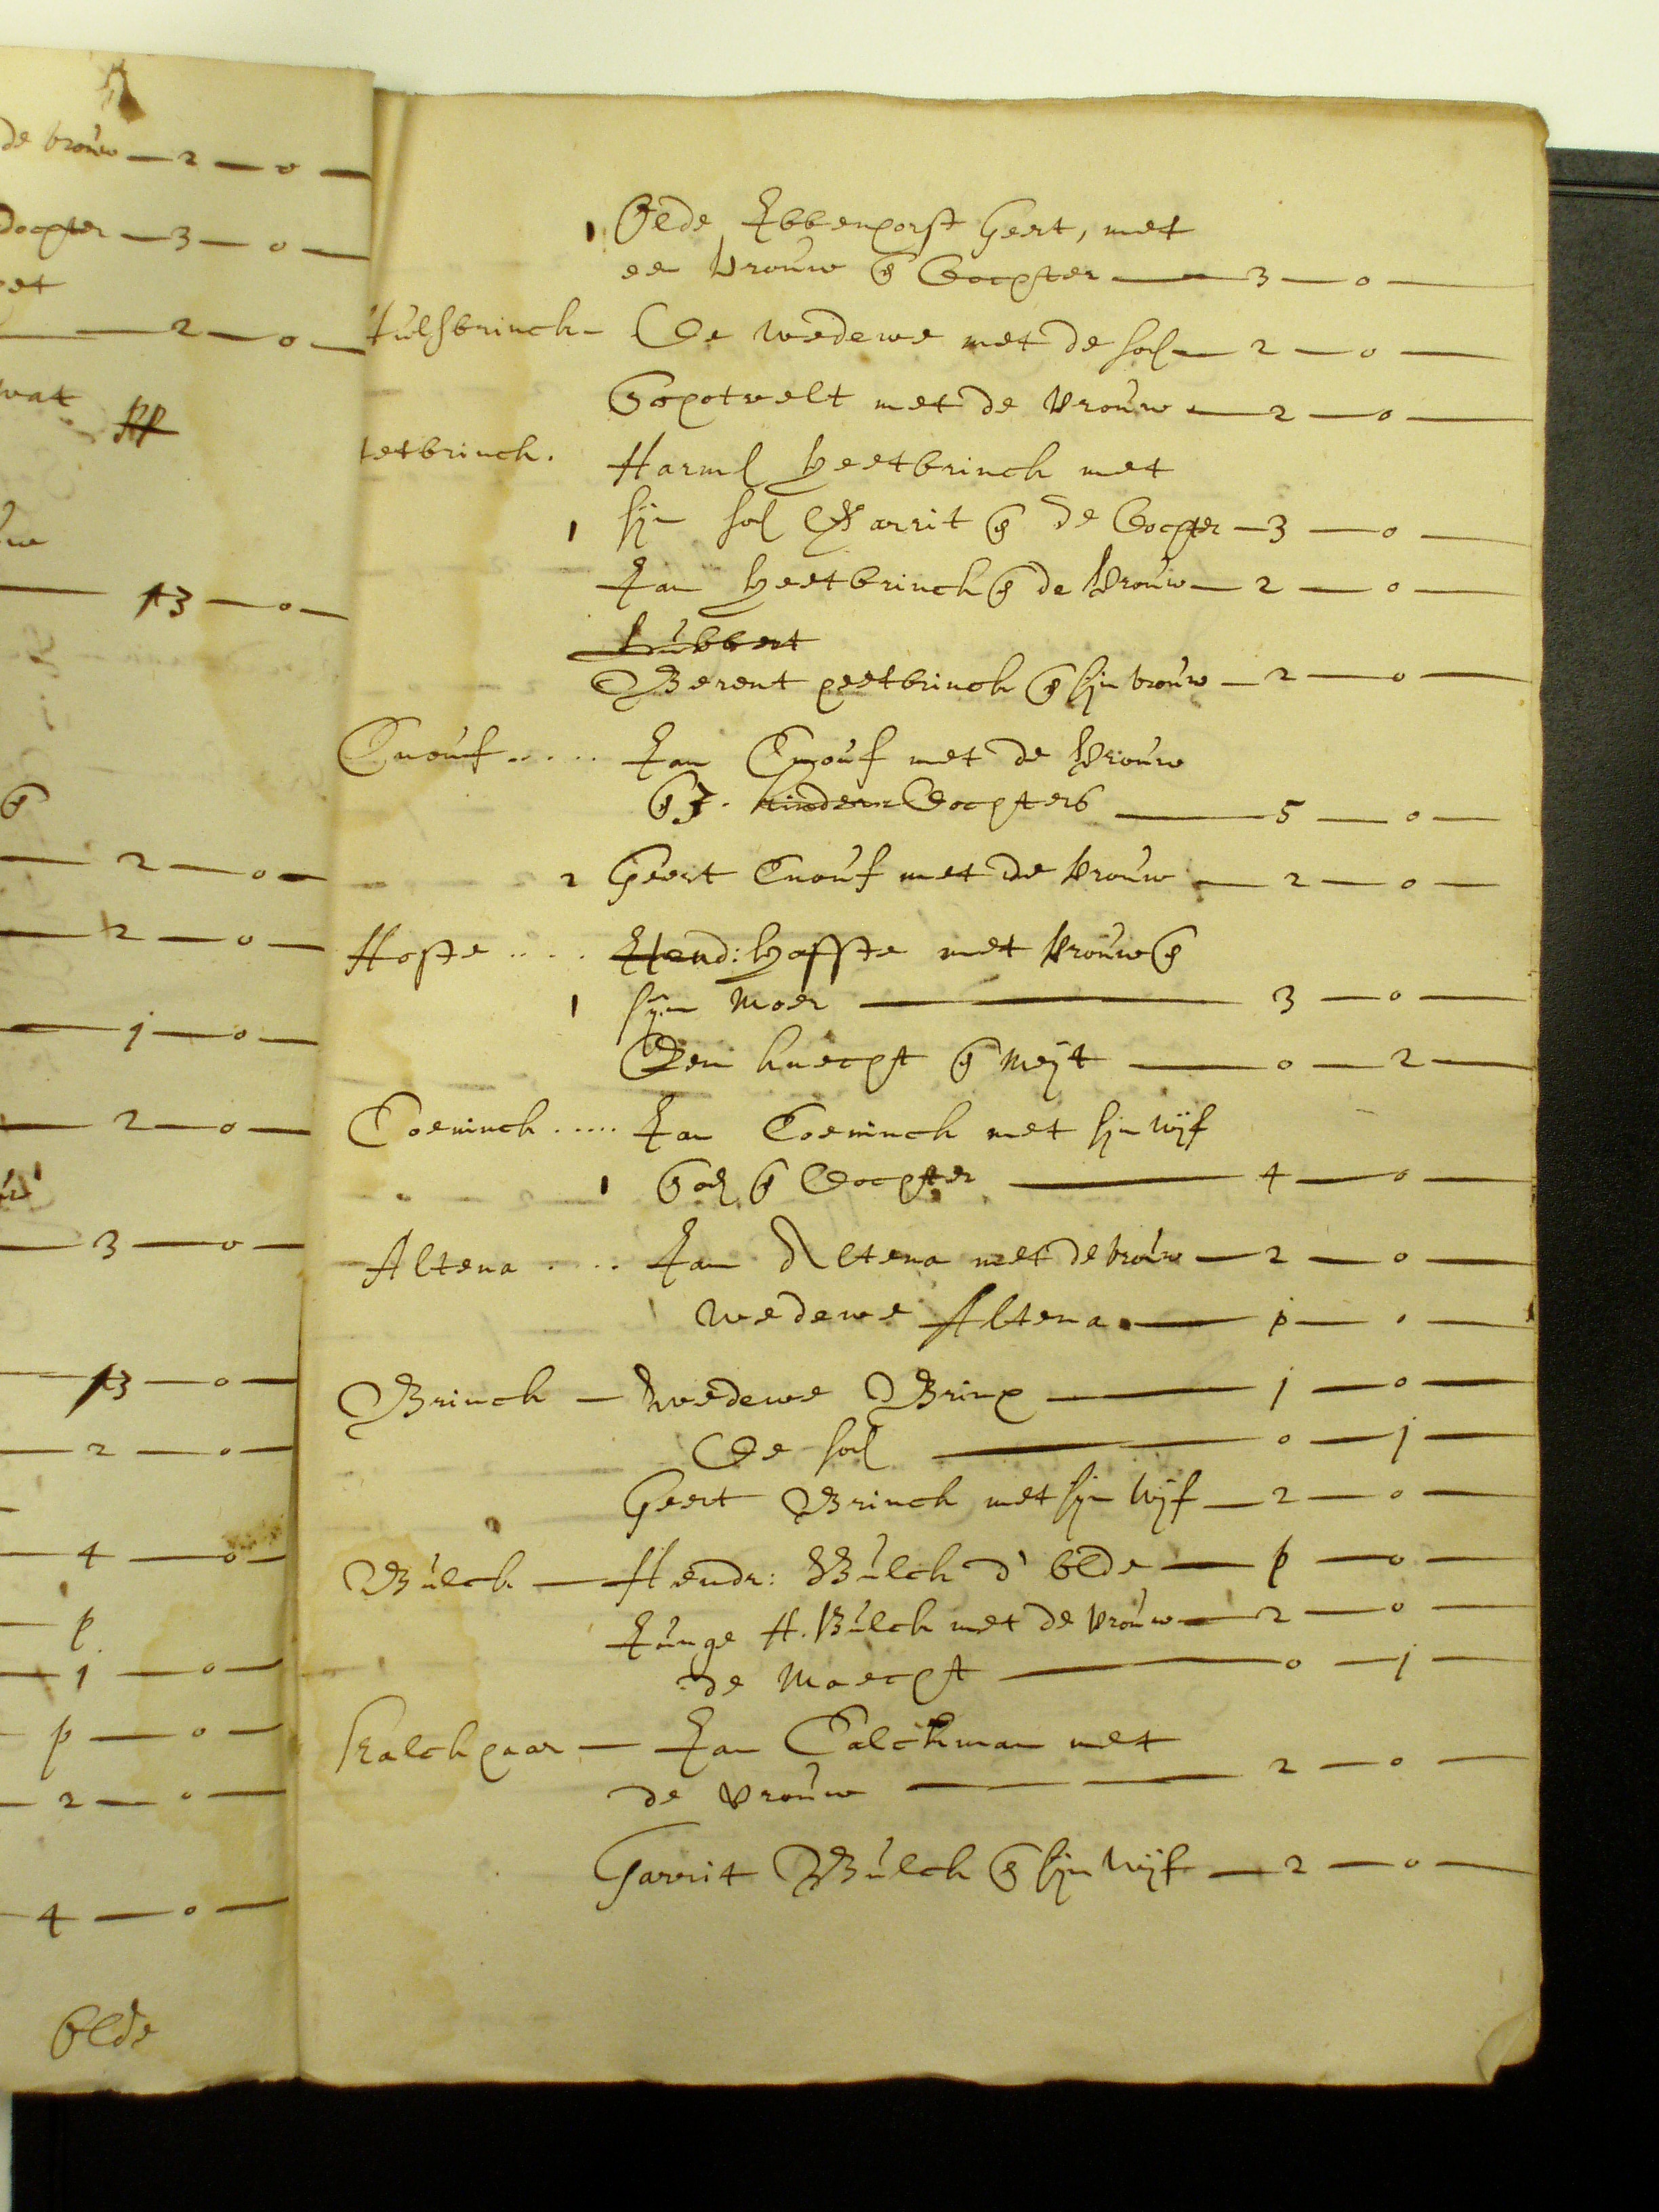 de vrouw — 2 — 0 —
dochter — 3 — 0 —
et
— 2 — 0 —
wat
13 — 0 —
en
— 2 — 0 —
— 2 — 0 —
— 1 — 0 —
— 2 — 0 —
— 3 — 0 —
— 13 — 0 —
— 2 — 0 —
— 4 — 0 —
— 1 — 0 —
— 1 — 0 —
— 2 — 0 —
— 4 — 0 —
Olde
1 Olde Ibbenhorst Geert, met
ee vrouw en Dochter — 3 — 0 —
Hulsbrinck — De wedewe met de soen — 2 — 0 —
met de vrouw — 2 — 0 —
etbrinck. Harmen Heetbrinck met
1 sijn soen Garrit en de Dochter — 3 — 0 —
Jan Heetbrinck en de Vrouw — 2 — 0 —
Lubbert
Berent Heetbrinck en sijn vrouw — 2 — 0 —
Cnouf ..... Jan Cnouf met de Vrouw
en 3. kinderen Dochters — 5 — 0 —
2 Geert Cnouf met de Vrouw — 2 — 0 —
Hofte .... Hend: Hoffte met Vrouw en
1 sijn Moer — 3 — 0 —
Een knecht en Meijt — 0 — 2 —
Coeninck ..... Jan Coeninck met sijn wijf
1 Soen en Dochter — 4 — 0 —
Altena .... Jan Altena met de vrouw — 2 — 0 —
wedewe Altena — 1 — . —
Brinck — Wedewe Brinch — 1 — 0 —
De soen — 0 — 1 —
Geert Brinck met sijn Wijf — 2 — 0 —
Bulck — Hendr: Bulck d' Olde — 1 — 0 —
Junge H. Bulck met de vrouw — 2 — 0 —
de Maecht — 0 — 1 —
Kalckhaar — Jan Calckman met
de vrouw — 2 — 0 —
Garrit Bulck en sijn Wijf — 2 — 0 —